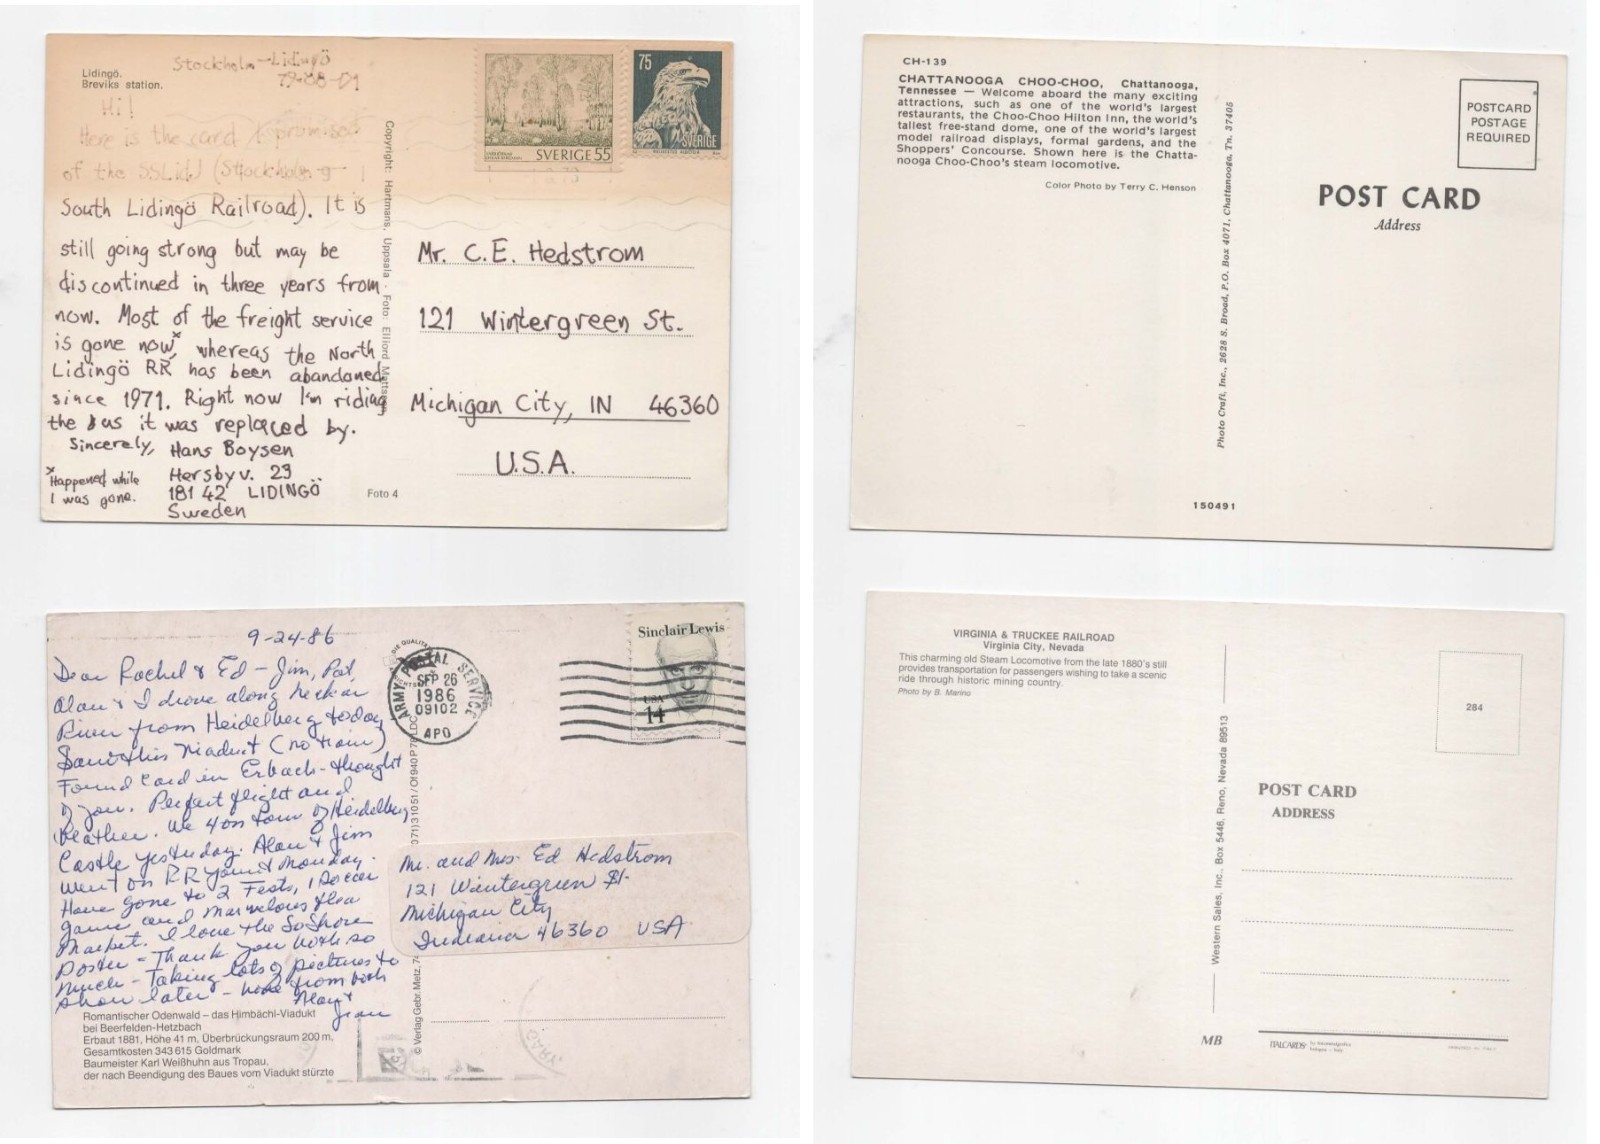 Lidingö.
Breviks station.
Stockholm-Lidingö
Hi!
Here is the card I promised
of the SSLidJ (Stockholm-
South Lidingö Railroad). It is
still going strong but may be
discontinued in three years from
now. Most of the freight service
is gone now*, whereas the North
Lidingö RR has been abandoned
since 1971. Right now I'm riding
the bus it was replaced by.
Sincerely, Hans Boysen
Hersbyv. 23
181 42 LIDINGÖ
Sweden
*Happened while
I was gone.
Foto 4
Copyright: Hartmans, Uppsala · Foto: Elliord
SVERIGE 55
75
SVERIGE
Mr. C.E. Hedstrom
121 Wintergreen St.
Michigan City, IN 46360
U.S.A.
CH-139
CHATTANOOGA CHOO-CHOO, Chattanooga,
Tennessee — Welcome aboard the many exciting
attractions, such as one of the world's largest
restaurants, the Choo-Choo Hilton Inn, the world's
tallest free-stand dome, one of the world's largest
model railroad displays, formal gardens, and the
Shoppers' Concourse. Shown here is the Chatta-
nooga Choo-Choo's steam locomotive.
Color Photo by Terry C. Henson
Photo Craft, Inc., 2628 S. Broad, P.O. Box 4071, Chattanooga, Tn. 37405
POSTCARD
POSTAGE
REQUIRED
POST CARD
Address
150491
9-24-86
Dear Rachel & Ed – Jim, Pat,
Alan & I drove along Neckar
River from Heidelberg today
Saw this Viaduct (no train)
Found card in Erbach - thought
of you. Perfect flight and
weather. We 4 on tour of Heidelberg
Castle yesterday. Alan & Jim
went on RR Monday.
Have gone to 2 Fests, 1 Soccer
game and marvelous flea
market. I love the So Shore
Poster – Thank you both so
much – Taking lots of pictures to
show later – from both
Alan &
Jean
Romantischer Odenwald – das Himbächl-Viadukt
bei Beerfelden-Hetzbach
Erbaut 1881, Höhe 41 m, Überbrückungsraum 200 m,
Gesamtkosten 343 615 Goldmark
Baumeister Karl Weißhuhn aus Tropau,
der nach Beendigung des Baues vom Viadukt stürzte
© Verlag Gebr. Metz,
ARMY POSTAL SERVICE
SEP 26
1986
09102
APO
Sinclair Lewis
USA
14
Mr. and Mrs. Ed Hedstrom
121 Wintergreen St.
Michigan City
Indiana 46360 USA
VIRGINIA & TRUCKEE RAILROAD
Virginia City, Nevada
This charming old Steam Locomotive from the late 1880's still
provides transportation for passengers wishing to take a scenic
ride through historic mining country.
Photo by B. Marino
Western Sales, Inc., Box 5446, Reno, Nevada 89513
284
POST CARD
ADDRESS
MB
ITALCARDS